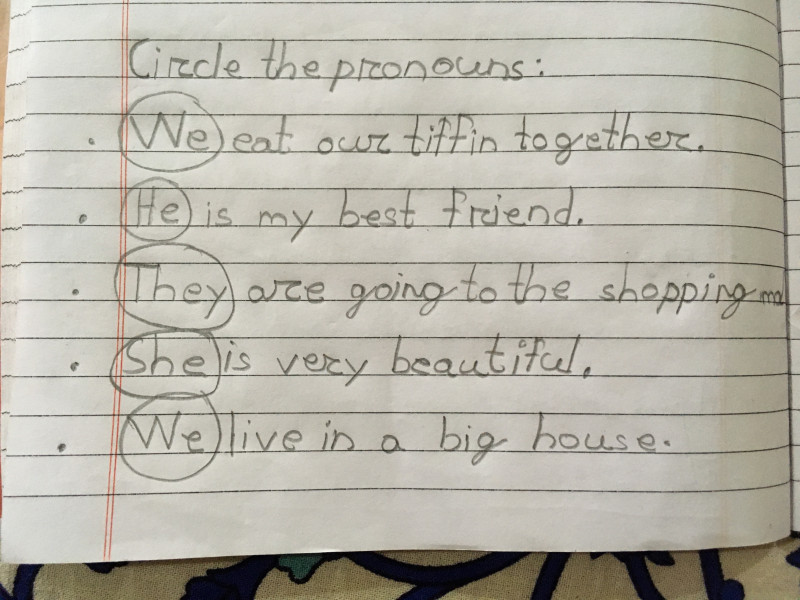 Circle the pronouns:
. We eat our tiffin together.
. He is my best friend.
. They are going to the shopping
. She is very beautiful.
. We live in a big house.